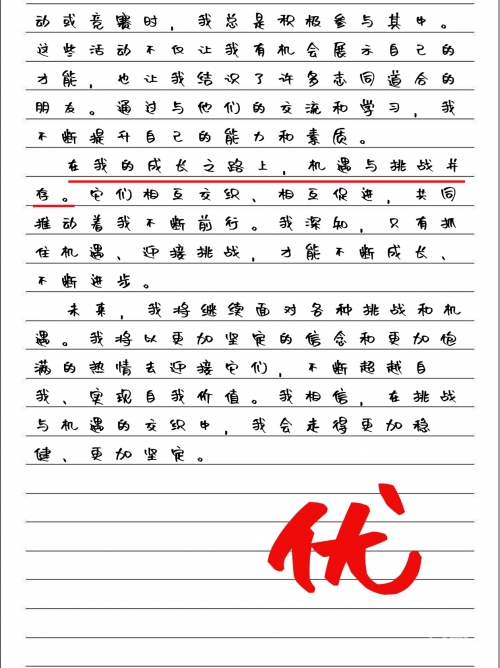 动或竞赛时，我总是积极参与其中。
这些活动不仅让我有机会展示自己的
才能，也让我结识了许多志同道合的
朋友。通过与他们的交流和学习，我
不断提升自己的能力和素质。
在我的成长之路上，机遇与挑战并
存。它们相互交织、相互促进，共同
推动着我不断前行。我深知，只有抓
住机遇、迎接挑战，才能不断成长、
不断进步。
未来，我将继续面对各种挑战和机
遇。我将以更加坚定的信念和更加饱
满的热情去迎接它们，不断超越自
我、实现自我价值。我相信，在挑战
与机遇的交织中，我会走得更加稳
健、更加坚定。
优